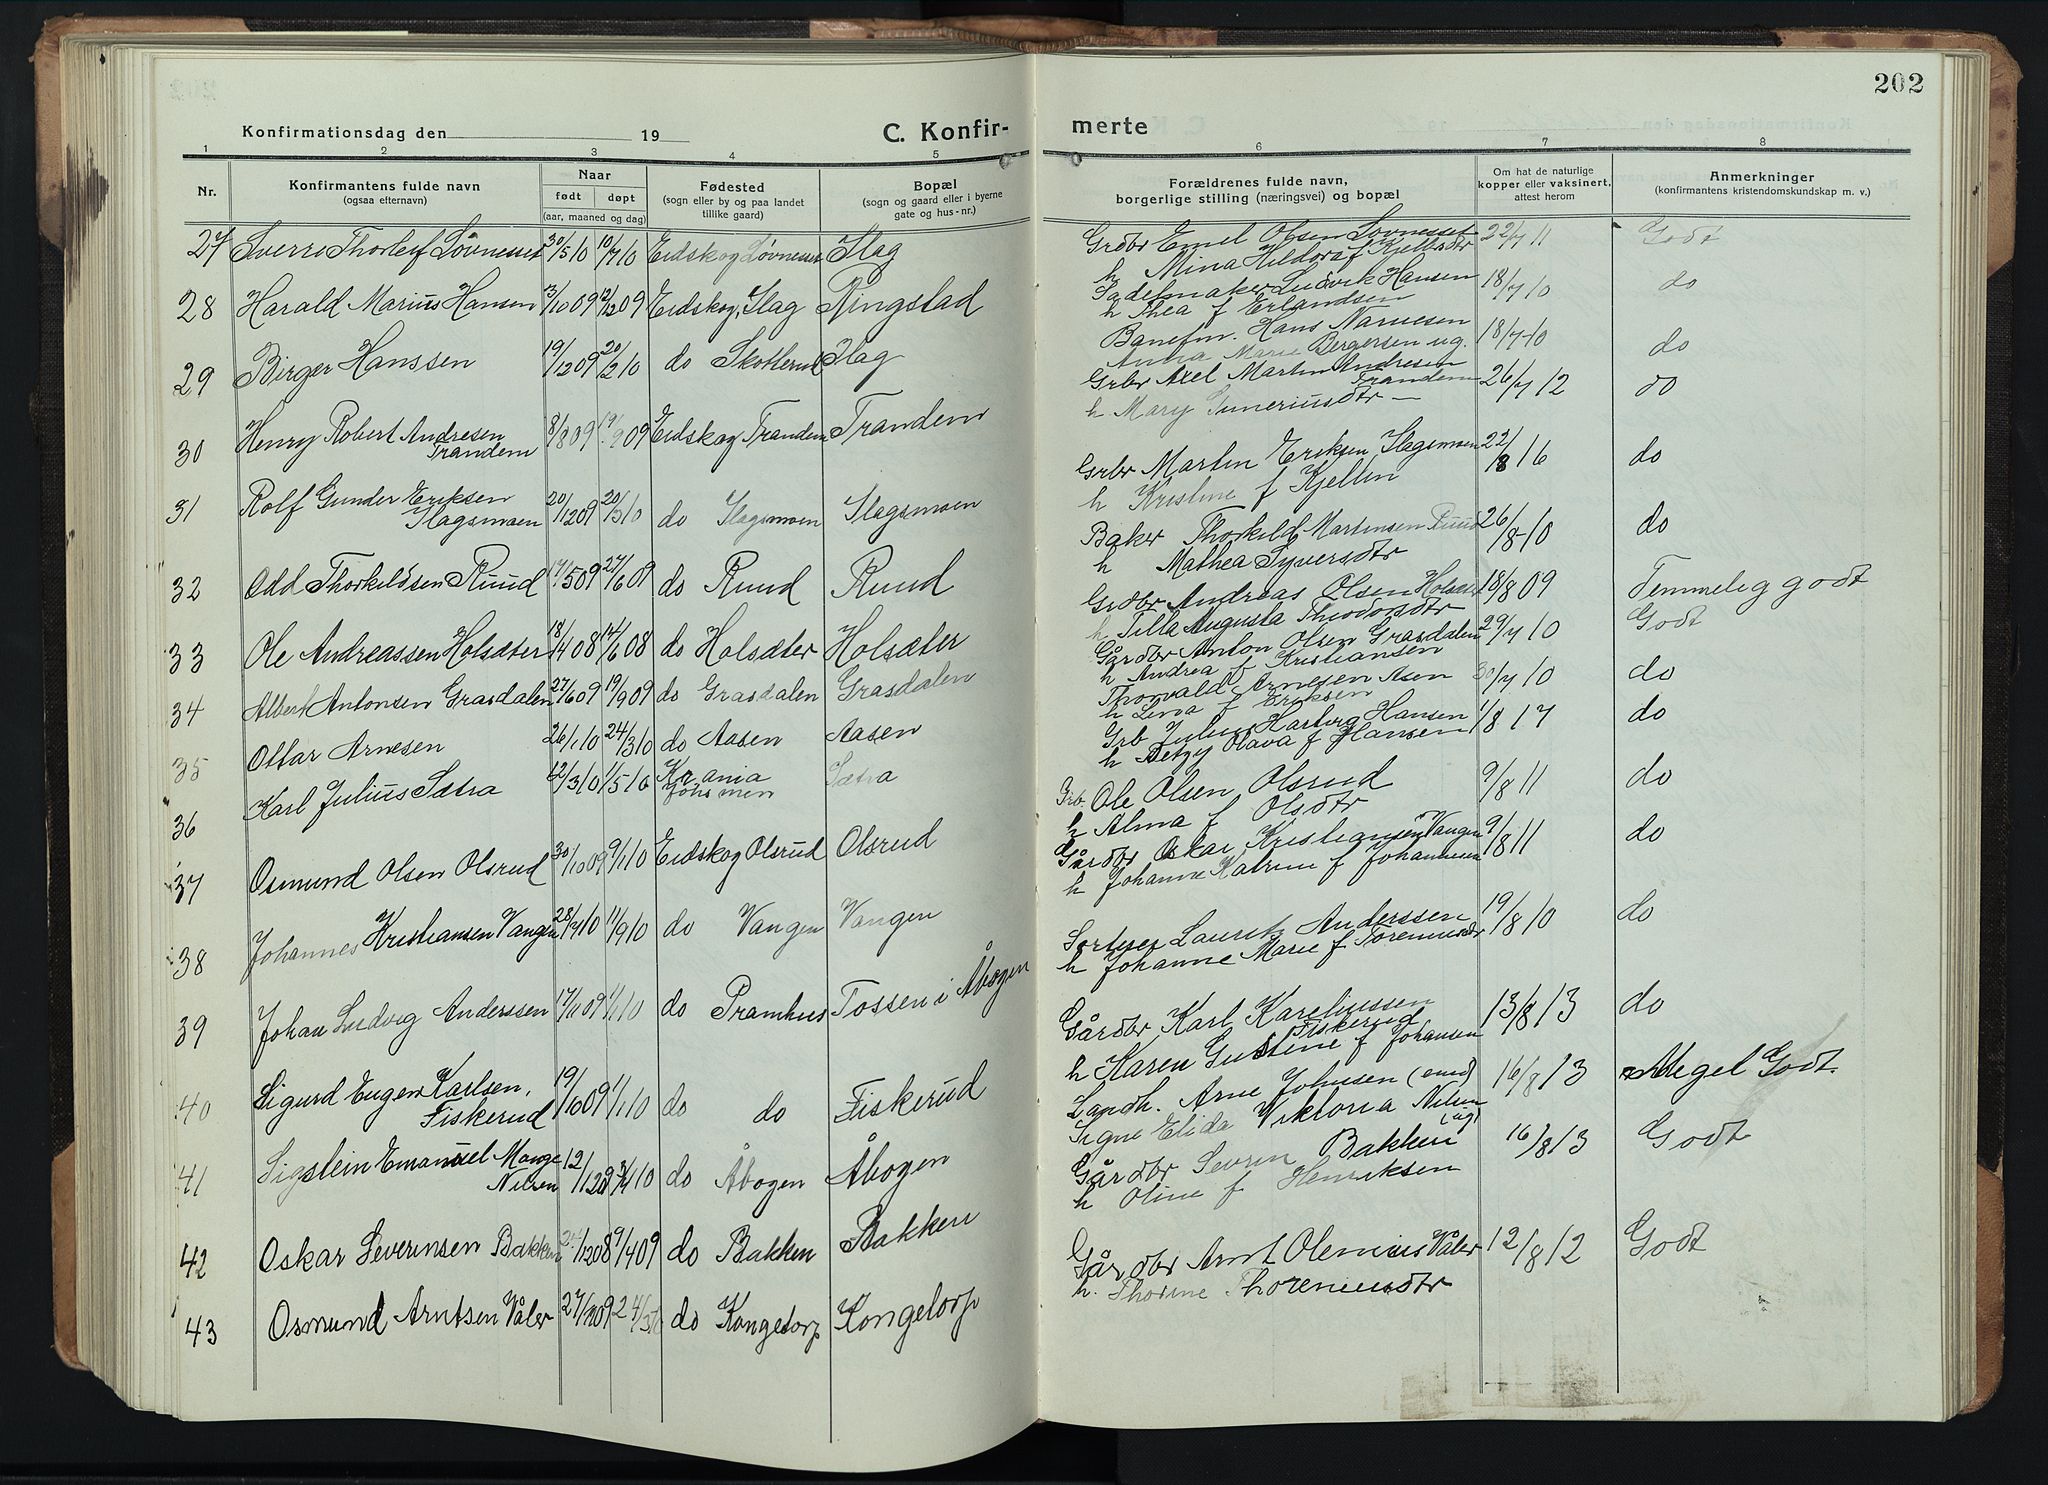 202
Konfirmationsdag den 19 C. Konfir-
merte
1 2 3 4 5
6 7 8
Nr. Konfirmantens fulde navn (ogsaa efternavn) Naar født døpt (aar, maaned og dag) Fødested (sogn eller by og paa landet tillike gaard) Bopæl (sogn og gaard eller i byerne gate og hus-nr.)
Forældrenes fulde navn, borgerlige stilling (næringsvei) og bopæl Om hat de naturlige kopper eller vaksinert, attest herom Anmerkninger (konfirmantens kristendomskundskap m. v.)
27 Sverre Thorleif Løvnesset 30/5 10 10/7 10 Eidskog Løvnesset Slag
Grdbr Emil Olsen Løvnesset 22/7 11 Godt
h Mina Hildora f Kjelbsdtr
28 Harald Marius Hansen 3/10 09 12/12 09 Eidskog, Slag Ringstad
Sadelmaker Ludvik Hansen 18/7 10 do
h Thea f Erlandsen
29 Birger Hanssen 19/12 09 20/2 10 do Skotterud Slag
Banefm. Hans Narvesen 18/7 10 do
Anna Marie Bergersen ug.
30 Henry Robert Andresen 8/8 09 19/9 09 Eidskog Trandem Trandem
Trandem
Grbr Axel Martin Andresen 26/7 12 do
Trandem
h Mary Simeriusdtr —
31 Rolf Gunder Eriksen 20/12 09 20/3 10 do Slagsmoen Slagsmoen
Slagsmoen
Grbr Martin Eriksen Slagsmoen 22/8 16 do
h Kristine f Kjellin
32 Odd Thorkildsen Ruud 17/5 09 27/6 09 do Ruud Ruud
Baker Thorkild Martinsen Ruud 26/8 10 do
h Mathea Syversdtr
33 Ole Andreassen Holsæter 18/4 08 14/6 08 do Holsæter Holsæter
Grdbr Andreas Olsen Holsæter 18/8 09 Temmelig godt
h Tilla Augusta Theodorsdtr
34 Albert Antonsen Grasdalen 27/6 09 19/9 09 do Grasdalen Grasdalen
Gårdbr Anton Olsen Grasdalen 29/7 10 Godt
h Andrea f Kristiansen
35 Ottar Arnesen 26/1 10 24/3 10 do Aasen Aasen
Thorvald Arnesen Asen 30/7 10 do
h Lina f Eriksen
36 Karl Julius Sætra 12/3 10 1/5 10 Kr ania Sætra
Grb Julius Hartvig Hansen 1/8 17 do
h Betzy Olava f Hansen
37 Osmund Olsen Olsrud 30/10 09 9/1 10 Eidskog Olsrud Olsrud
Grb. Ole Olsen Olsrud 9/8 11 do
h Alma f Olsdtr
38 Johannes Kristiansen Vangen 28/7 10 11/9 10 do Vangen Vangen
Gårdbr Oskar Kristiansen Vangen 9/8 11 do
h Johanne Katrine f Johannesen
39 Johan Ludvig Anderssen 17/11 09 1/1 10 do Pramhus Tossen i Åbogen
Sorterer Lauritz Anderssen 19/8 10 do
h Johanne Marie f Toreniusdtr
40 Sigurd Eugen Karlsen, 19/10 09 1/1 10 do do Fiskerud
Fiskerud
Gårdbr Karl Kareliussen 13/8 13 do
Fiskerud
h Karen Gustine f Johansen
41 Sigstein Emanuel Mange 12/12 09 3/4 10 do Åbogen Åbogen
Nilsen
Landh. Arne Johnsen (enm) 16/8 13 Meget Godt
Signe Elida Viktoria Nilsen (ug)
42 Oskar Severinsen Bakken 24/12 08 9/4 09 do Bakken Bakken
Gårdbr Sevrin Bakken 16/8 13 Godt
h Oline f Henriksen
43 Osmund Arntsen Våler 27/12 09 24/3 10 do Kongetorp Kongetorp
Gårdbr Arnt Olenius Våler 12/8 12 Godt
h. Thorine Thoreniusdtr